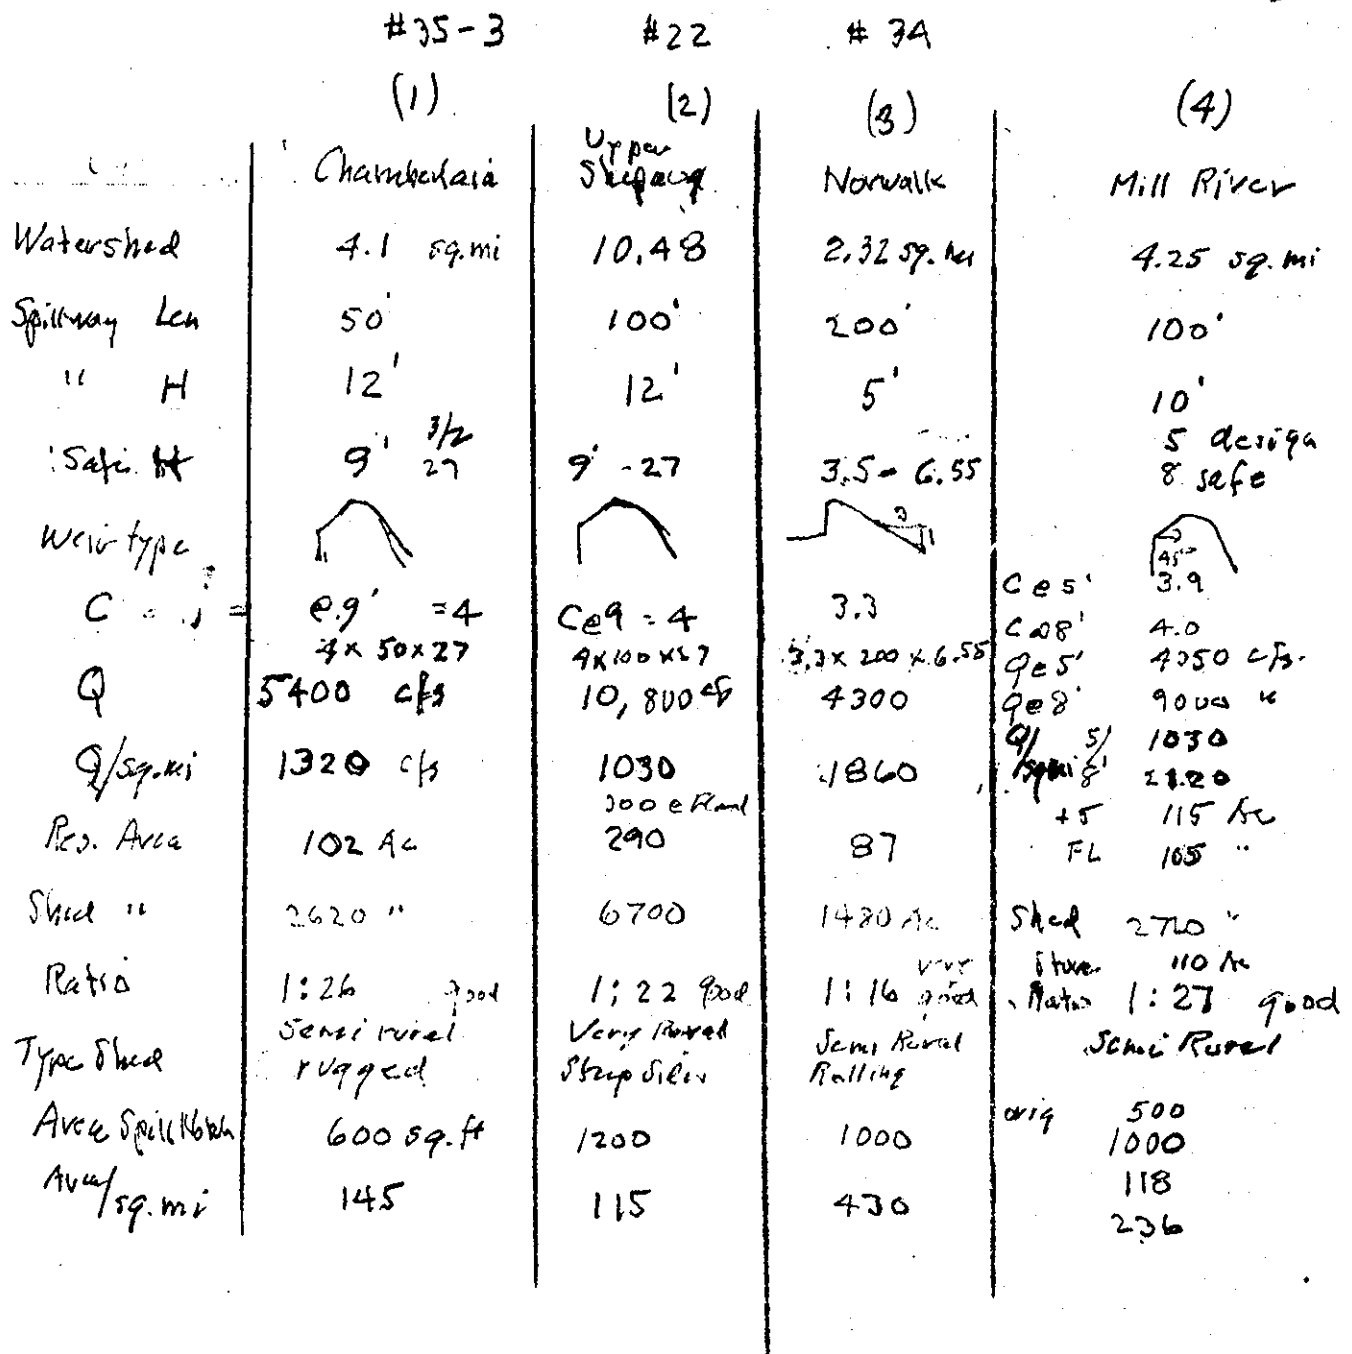 #35-3 #22 #3A
(1) (2) (3) (4)
Chamberlain Upper Shepaug Norwalk Mill River
Watershed 4.1 sq.mi 10.48 2.32 sq.mi 4.25 sq.mi
Spillway Len 50' 100' 200' 100'
" H 12' 12' 5' 10'
5 design
Safe H 9' 3/2 27 9' - 27 3.5 - 6.55 8 safe
Weir type 3 1 45°
C = @ 9' = 4 C@9 = 4 3.3 C@5' 3.9
C@8' 4.0
4 x 50 x 27 4x100x27 3.3 x 200 x 6.55 Q@5' 4350 cfs.
Q 5400 cfs 10,800 cfs 4300 Q@8' 9000 "
Q/sq.mi 1320 cfs 1030 1860 Q/sq.mi 5' 1030
8' 2120
300 @ Flood +5 115 Ac
Res. Area 102 Ac 290 87 FL 105 "
Shed " 2620 " 6700 1480 Ac Shed 2720 "
110 Ac
Ratio 1:26 good 1:22 good 1:16 very good Ratio 1:27 good
Type Shed Semi rural rugged Very Rural Steep Sides Semi Rural Rolling Semi Rural
Area Spill Notch 600 sq.ft 1200 1000 orig 500
1000
Area/sq.mi 145 115 430 118
236